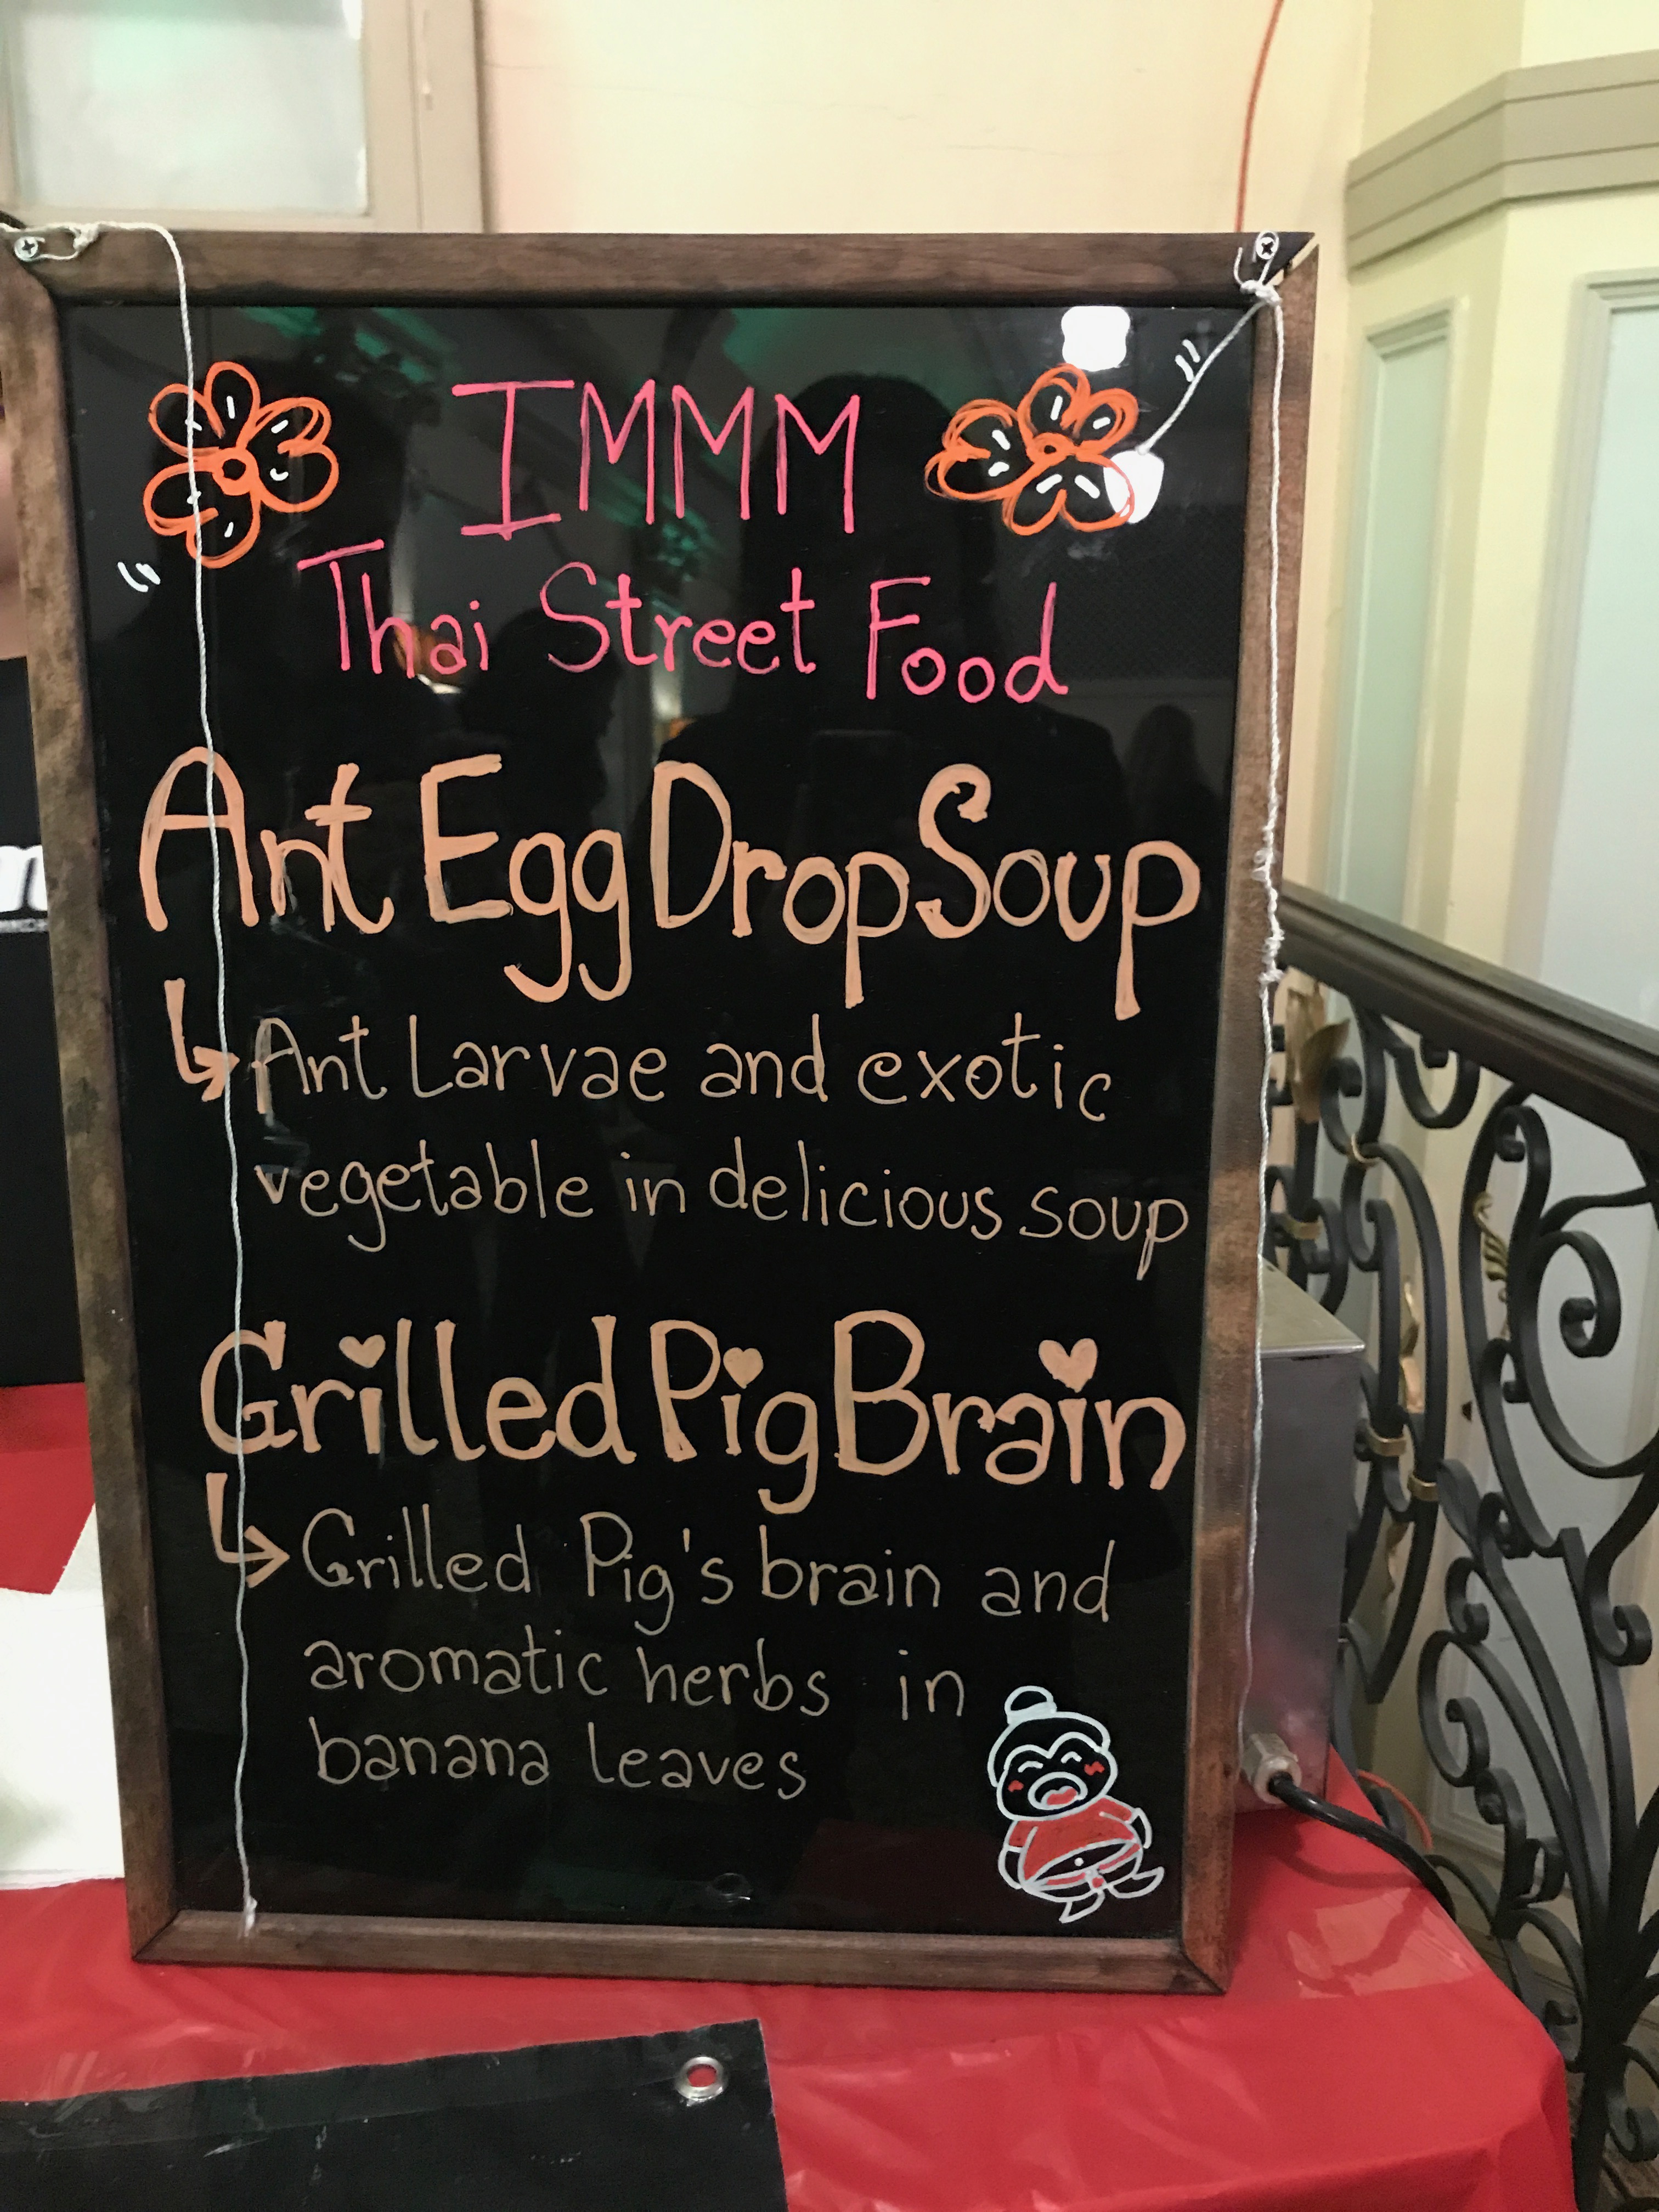 IMMM
Thai Street Food
Ant Egg Drop Soup
Ant Larvae and exotic
vegetable in delicious soup
Grilled Pig Brain
Grilled Pig's brain and
aromatic herbs in
banana leaves